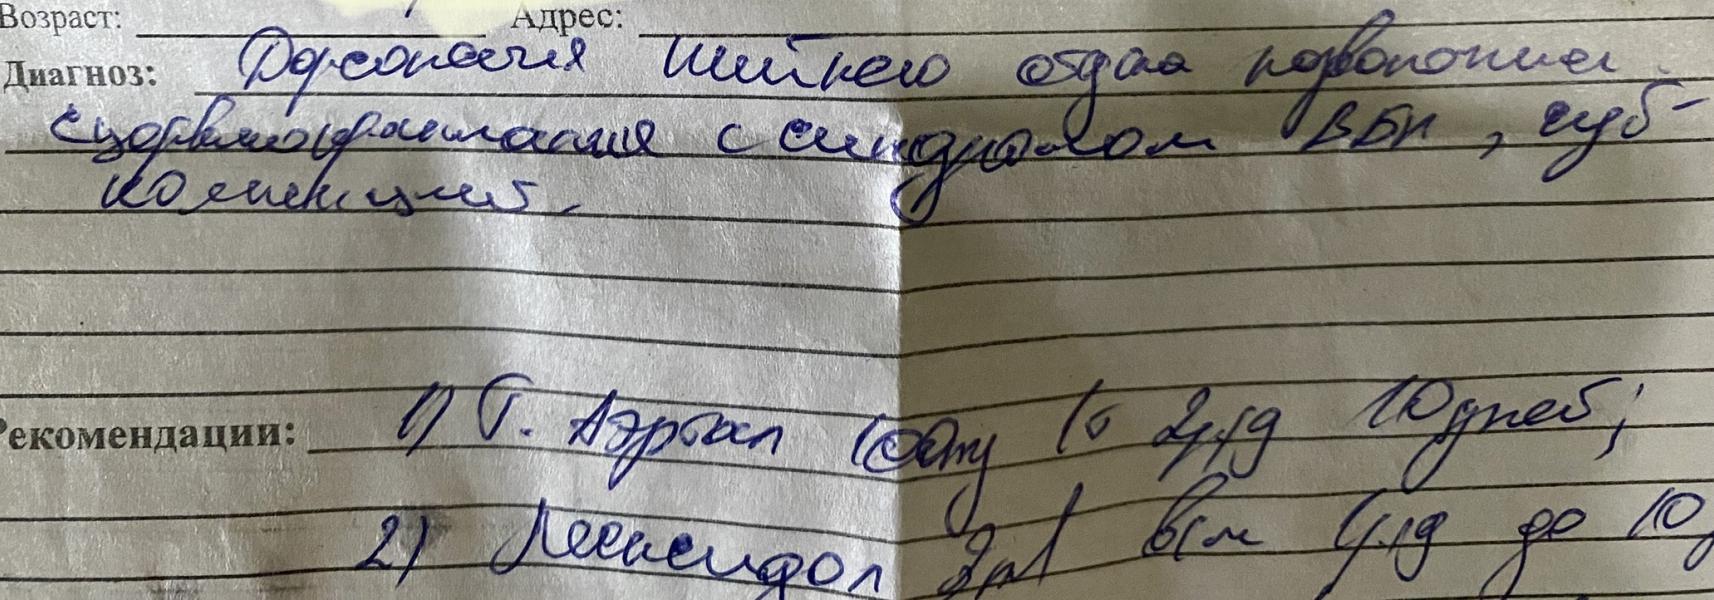 Возраст: Адрес:
Диагноз: Дорсопатия шейного отдела позвоночника.
Цервикокраниалгия с синдромом ВБН, суб-
компенсация.
Рекомендации: 1) Т. Аэртал 100мг 1т 2р/д 10 дней;
2) Мексидол 2мл в/м 1р/д до 10